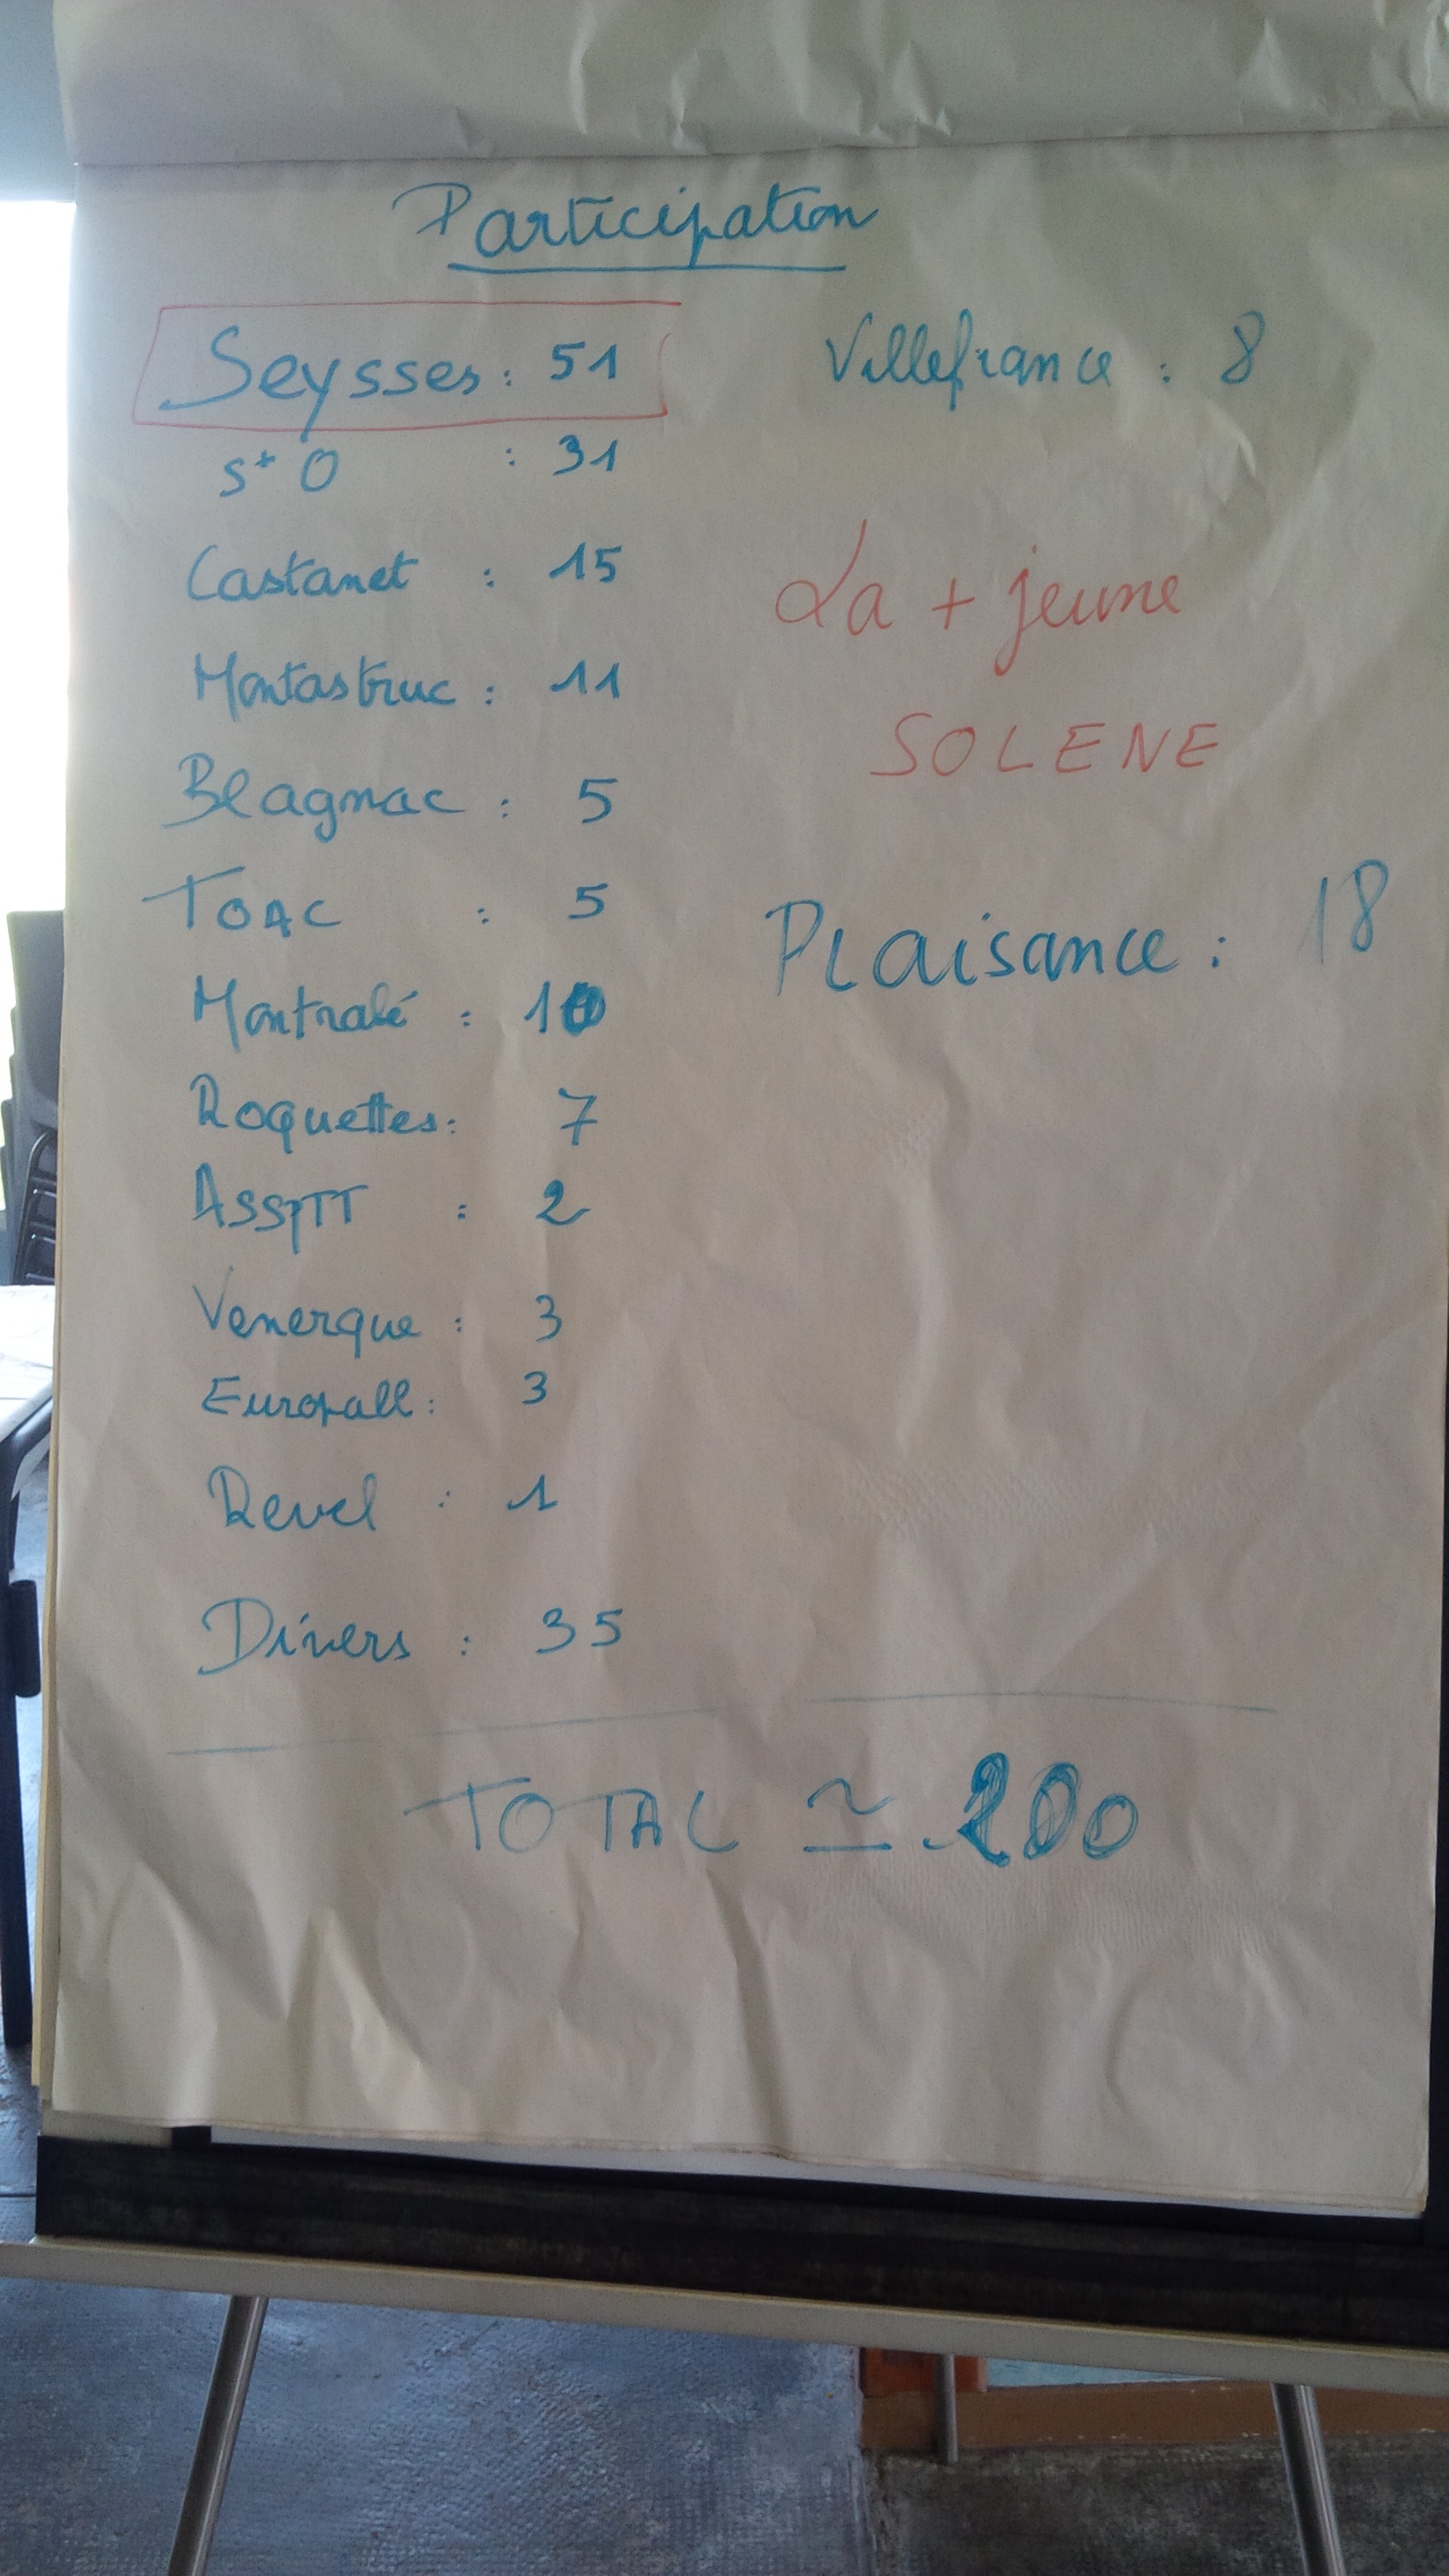 Participation
Seysses : 51
St O : 31
Castanet : 15
Montastruc : 11
Blagnac : 5
TOAC : 5
Montrabé : 10
Roquettes : 7
ASSPTT : 2
Venerque : 3
Eurofall : 3
Revel : 1
Divers : 35
Villefrance : 8
La + jeune
SOLENE
Plaisance : 18
TOTAL ≃ 200